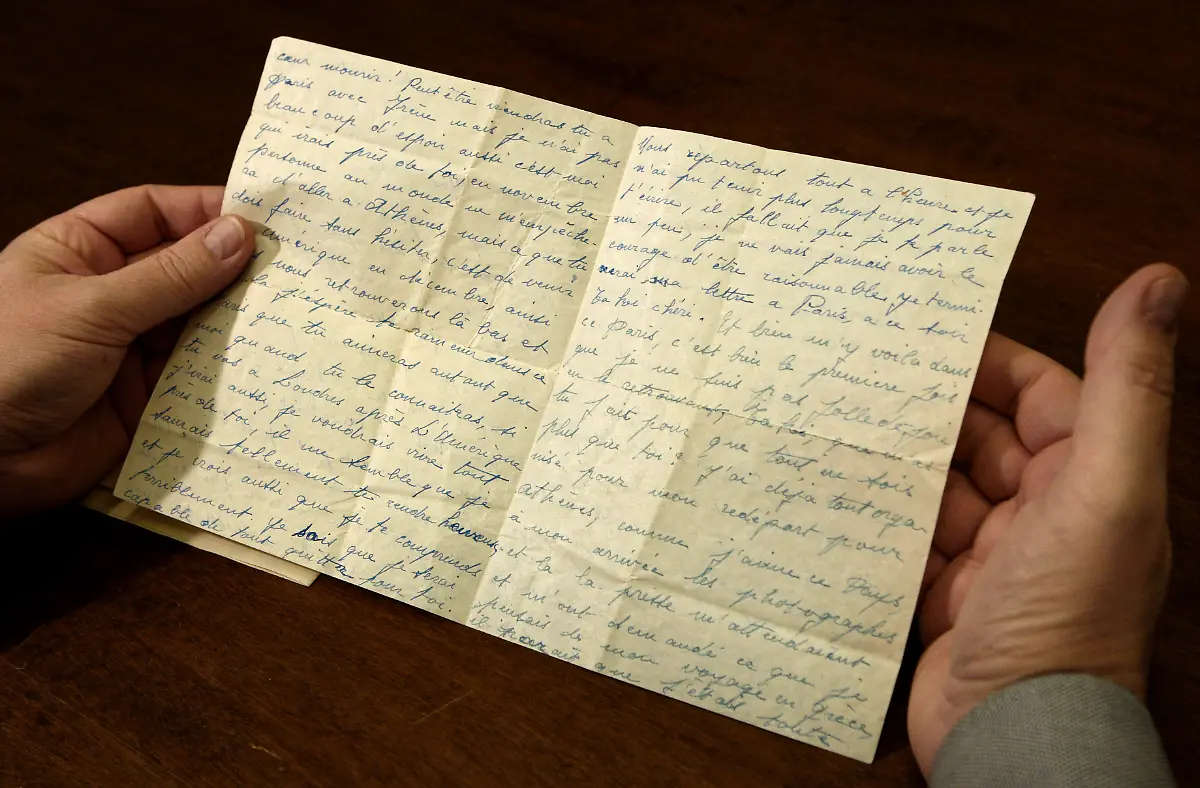 cœur mourir! Peut être viendras tu a
Paris avec Irène mais je n'ai pas
beaucoup d'espoir aussi c'est moi
qui irais près de toi, en novembre
personne au monde ne m'empèche-
ra d'aller a Athènes, mais ce que tu
dois faire sans hésiter, c'est de venir
que en decembre, ainsi
nous retrouverons là bas et
la j'espère te ramener dans ce
Paris que tu aimeras autant que
moi quand tu le connaitras, si
tu vas a Londres après l'Amérique
j'irai aussi, je voudrais vivre tout
près de toi, il me semble que je
saurais tellement te rendre heureux,
et je crois aussi que je te comprends
terriblement je sais que je serai
capable de tout quitter pour toi.
Nous repartons tout a l'heure et je
n'ai pu tenir plus longtemps pour
t'écrire, il fallait que je te parle
un peu, je ne vais jamais avoir le
courage d'être raisonnable, je termi-
nerai ma lettre a Paris, a ce soir
chéri. Et bien m'y voila dans
ce Paris, c'est bien la première fois
que je ne suis pas folle de joie
en le retrouvant,
tu fait pour que tout ne sois
plus que toi? J'ai déjà tout orga-
nisé pour mon redépart pour
Athènes, comme j'aime ce Pays,
à mon arrivée les photographes
et la presse m'attendaient
et m'ont demandé ce que je
pensais de mon voyage en Grèce,
il parait que j'étais toute